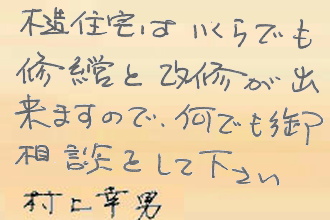 木造住宅はいくらでも
修営と改修が出
来ますので、何でも御
相談をして下さい
村上幸男